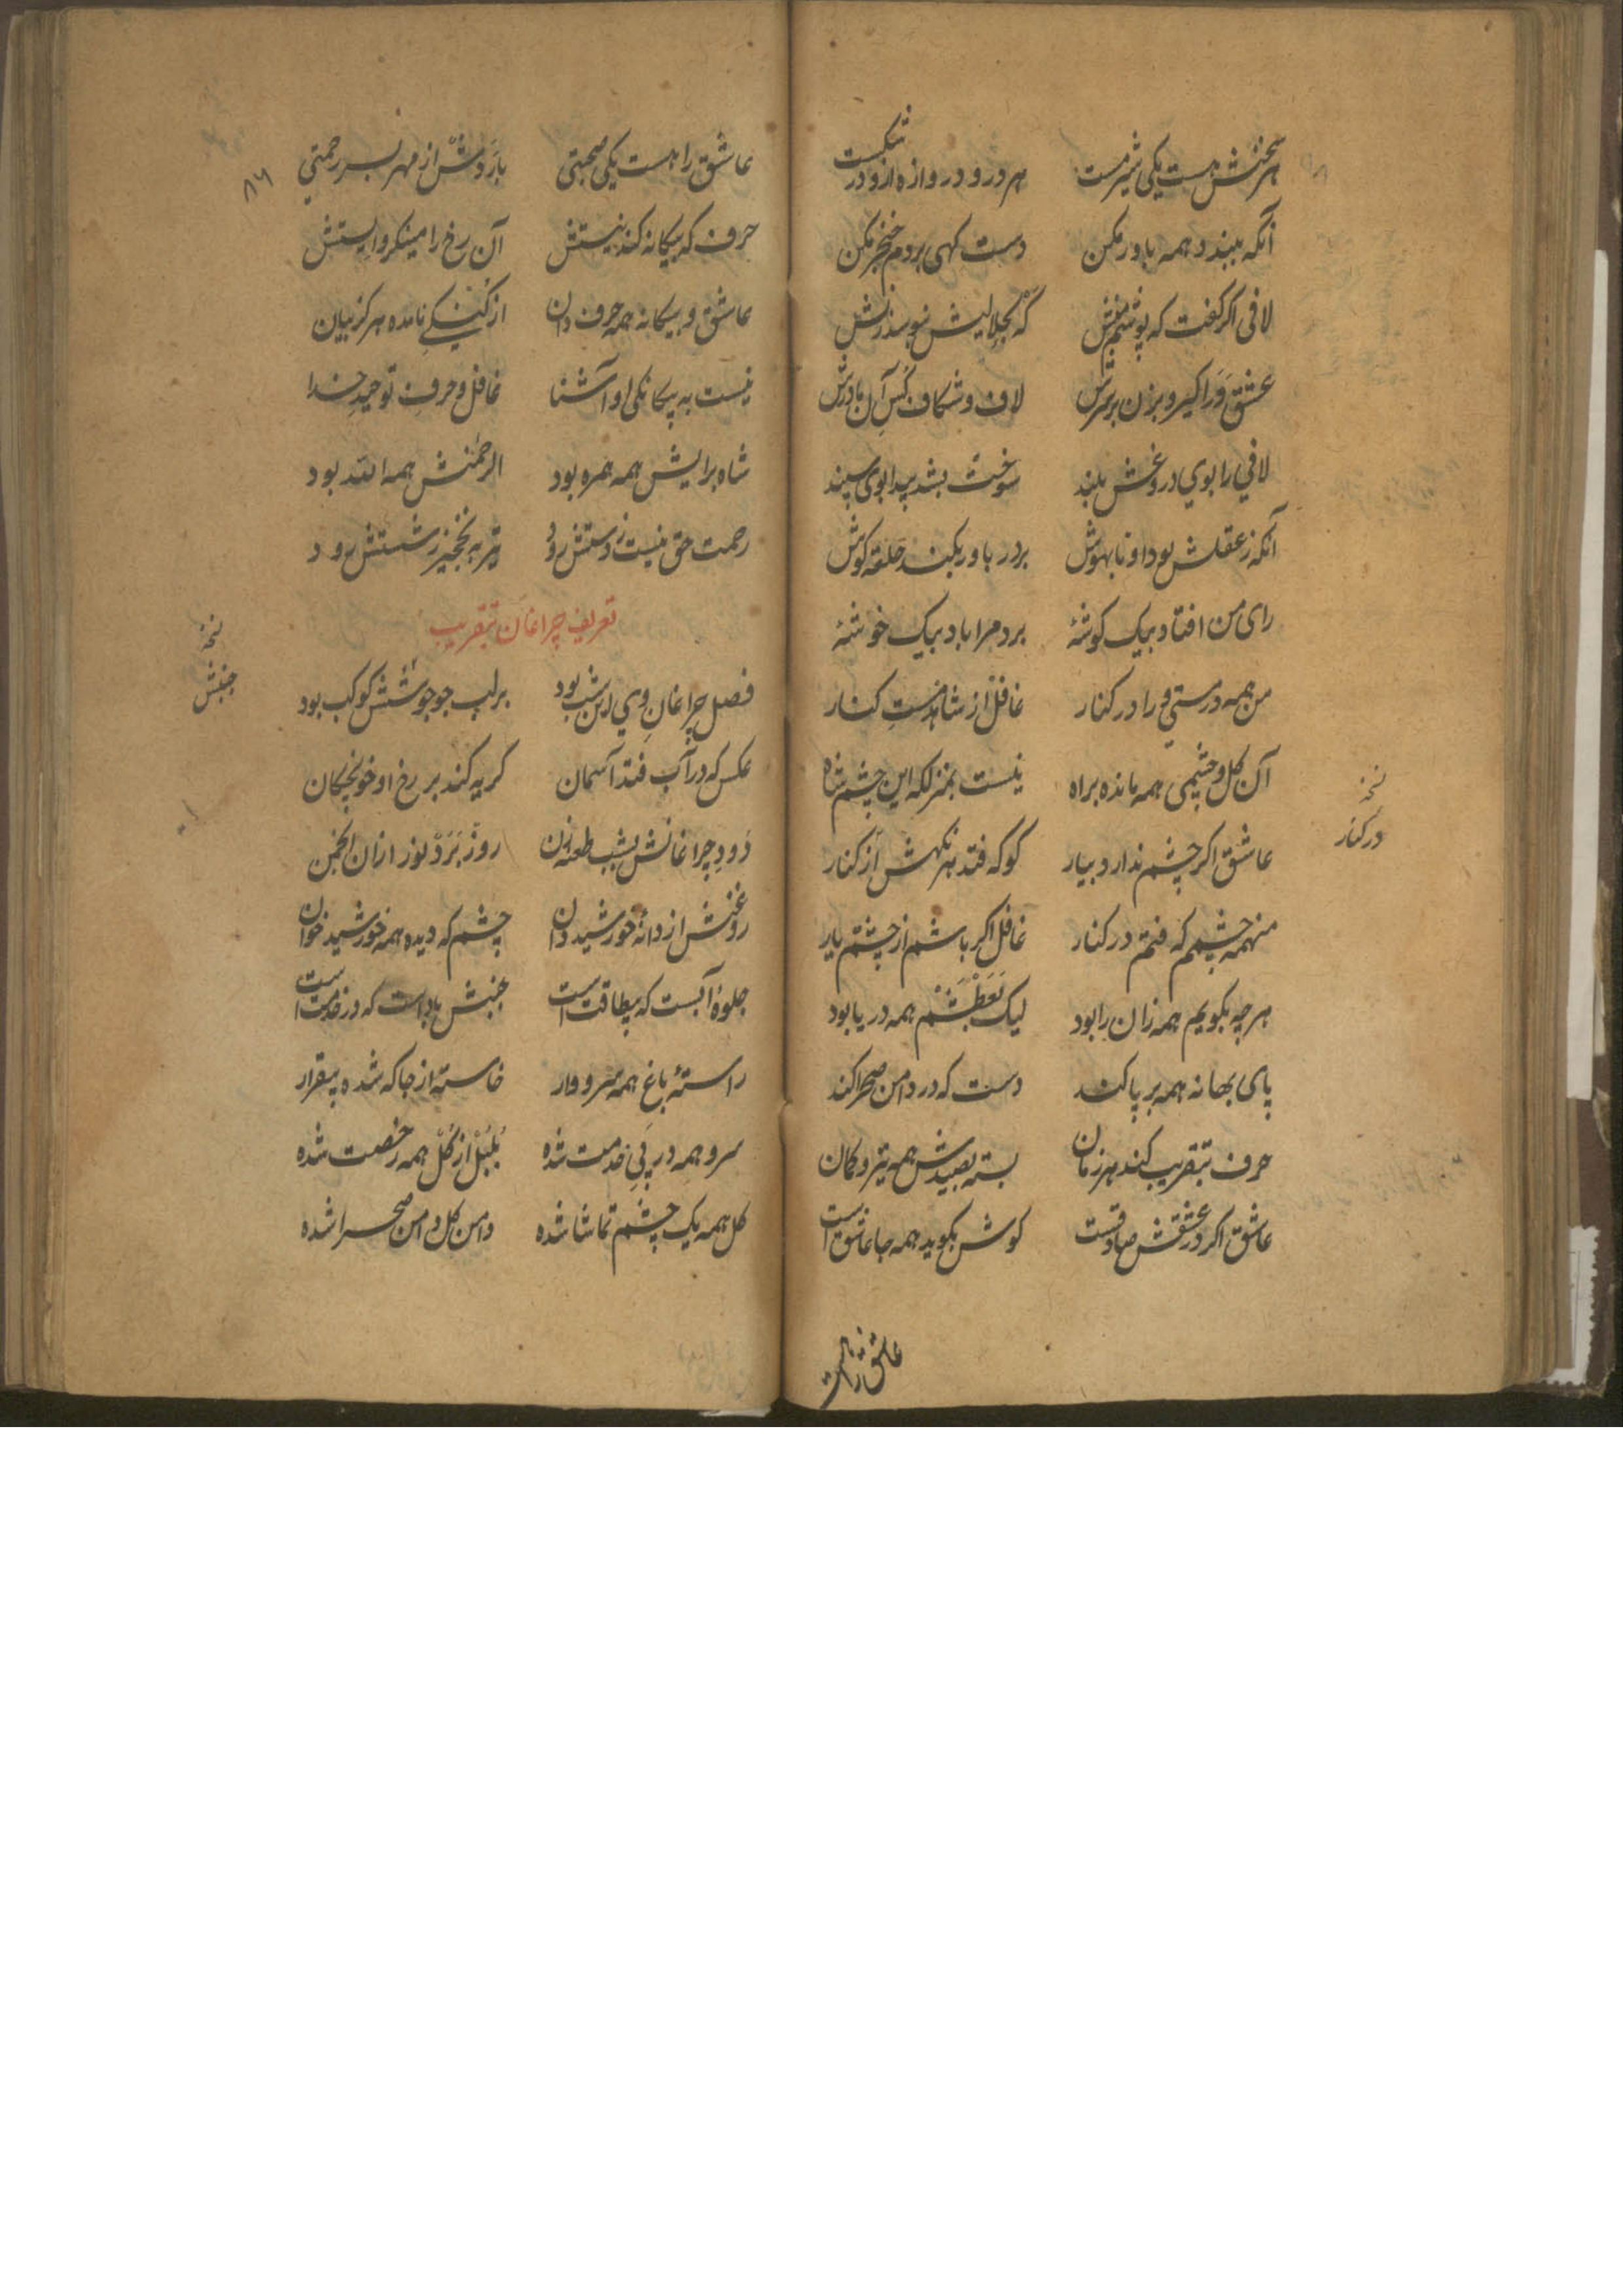 هر سخنش هست یکی شیر مست    هر در و دروازه ازو در شکست
آنکه ببیند و همه باور مکن    دست کهی بر دم خنجر مکن
لافی اکر کفت که پوشم
عشق ورا کیر و بزن بر سرش    لاف و شکاف کس آن مادرش
لافی را بوی دروغش بلند    سوخت بشد پیدا بوی سپند
آنکه ز عقلش بود او نابهوش    بر در باور بکند حلقه کوش
رای من افتاد بیک کوشهٔ    برد مرا باد بیک خوشهٔ
من همه در مستی ورا در کنار    غافل از شاهد مست کنار
آن کل و چشمی همه مانده براه    نیست بمنزلکه این چشم شاه
عاشق اکر چشم ندارد بیار    کو که فتد هر نکهش از کنار
منهمه چشمم که فتم در کنار    غافل اکر باشم از چشم یار
هر چه بکویم همه زان را بود    لیک تعطشم همه دریا بود
پای بهانه همه بر پا کند    دست که در دامن صحرا کند
حرف بتقریب کند هر زمان    بسته بصیدش همه تیر و کمان
عاشق اکر در عشقش صادقست    کوش بکوید همه جا عاشق است
نسخه
در کنار
عاشق را هست
۸۶
عاشق را هست یکی صحبتی    بار دوشش از مهر بسر رحمتی
حرف که بیکانه کند نیستش    آن رخ را مینکر و ایستش
عاشق و بیکانه همه حرف دان    از نامده هرکز بیان
نیست به بیکانکی او آشنا    غافل و حرف توحید خدا
شاه برایش همه همره بود    الرحمنش همه الله بود
رحمت حق نیست ز دستش رود    تیر به نخچیز ز شستش رود
تعریف چراغان بتقریب
فصل چراغان وی این شب بود    بر لب جو جوششش کوکب بود
عکس که در آب فتد آسمان    کریه کند بر رخ او خونچکان
دود چراغانش بشب طعنه زن    روز برد نور ازان انجمن
روغنش از دانهٔ خورشید دان    چشم که دیده همه خورشید خوان
جلوهٔ آبست که بیطاقت است    جنبش باد است که در خدمت است
راستهٔ باغ همه سرووار    خاسته از جا که شده بیقرار
سرو همه در پی خدمت شده    بلبل از کل همه رخصت شده
کل همه یک چشم تماشا شده    دامن کل دامن صحرا شده
نسخه
جنبش